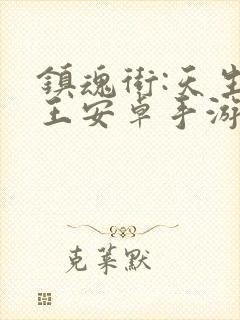 鎮魂街:天生
王安卓手游
克莱默